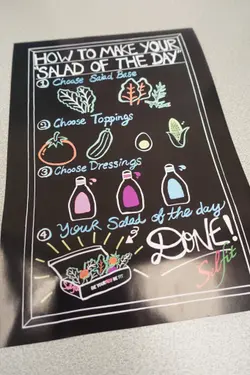 HOW TO MAKE YOUR
SALAD OF THE DAY
① Choose Salad Base
② Choose Toppings
③ Choose Dressings
④ Your Salad of the day
DONE!
Salfit